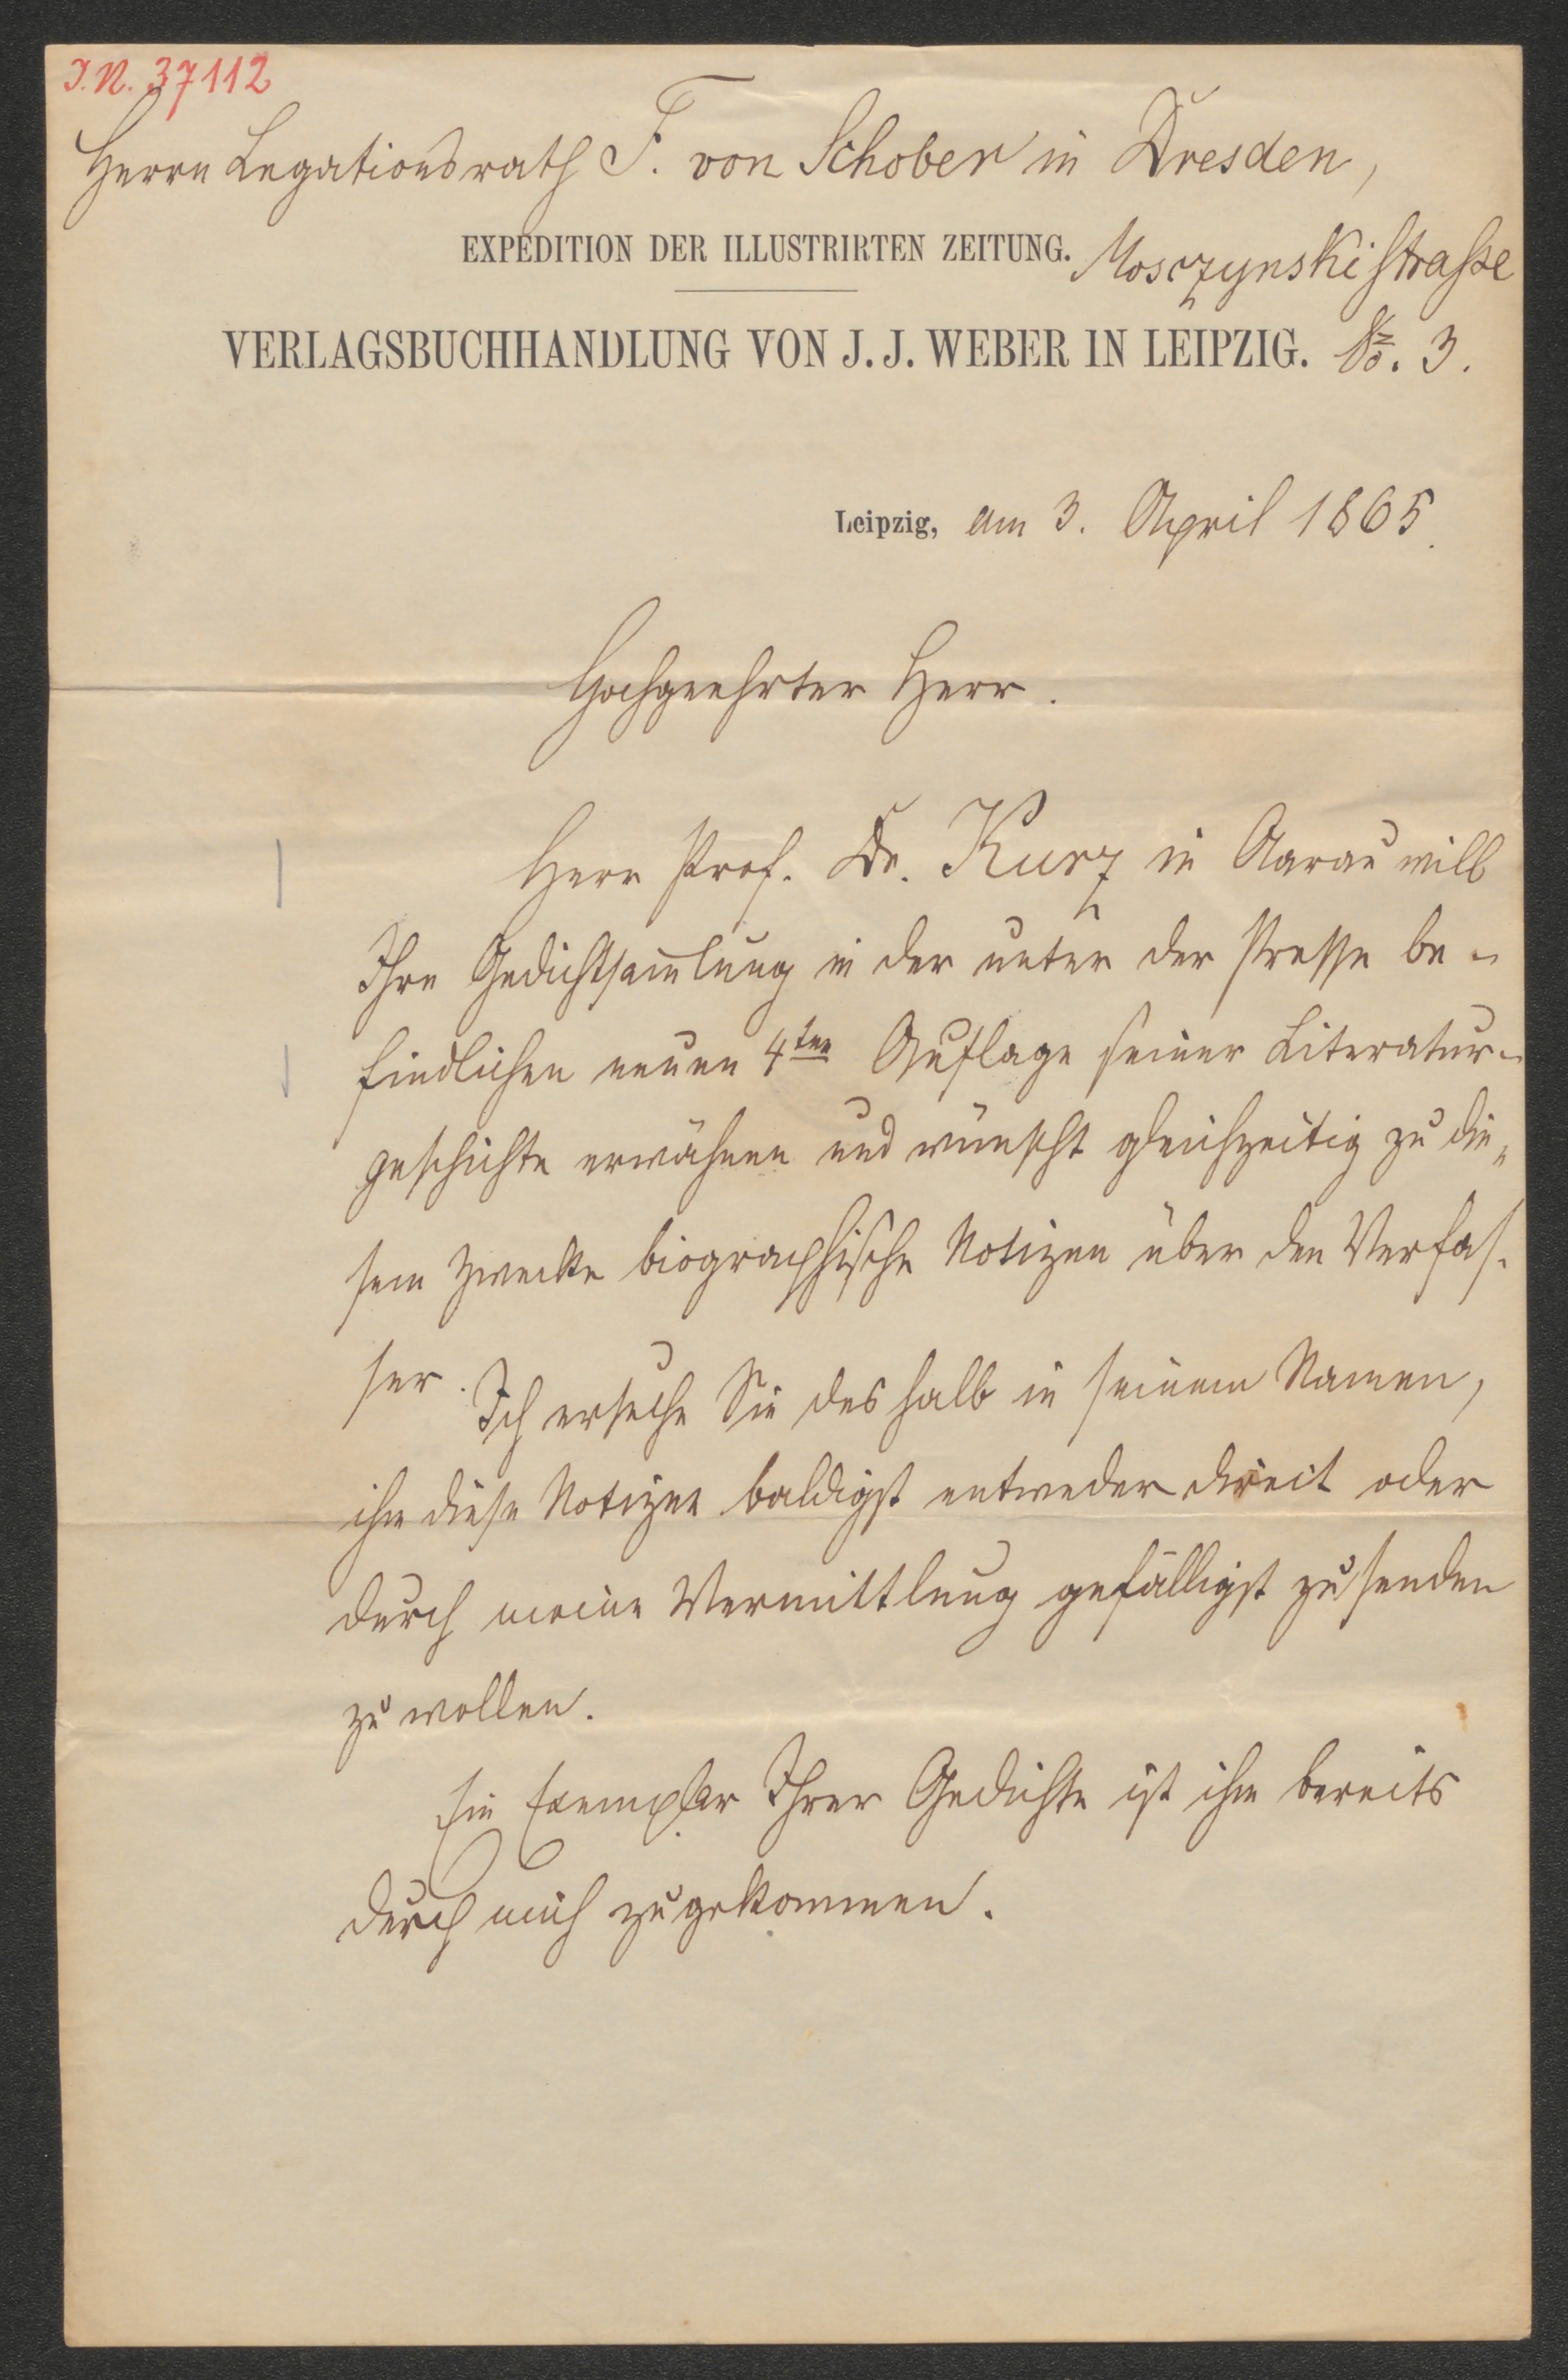 J.N. 37112
Herrn Legationsrath F. von Schober in Dresden,
EXPEDITION DER ILLUSTRIRTEN ZEITUNG. Mosczynskistraße
VERLAGSBUCHHANDLUNG VON J. J. WEBER IN LEIPZIG. No. 3.
Leipzig, am 3. April 1865.
Hochgeehrter Herr.
Herr Prof. Dr. Kurz in Aarau will
Ihre Gedichtsam̄lung in der unter der Presse be-
findlichen neuen 4ten Auflage seiner Literatur-
geschichte erwähnen und wünscht gleichzeitig zu die-
sem Zwecke biographische Notizen über den Verfas-
ser. Ich ersuche Sie deshalb in seinem Namen,
ihm diese Notizen baldigst entweder direct oder
durch meine Vermittlung gefälligst zusenden
zu wollen.
Ein Exemplar Ihrer Gedichte ist ihm bereits
durch mich zugekommen.